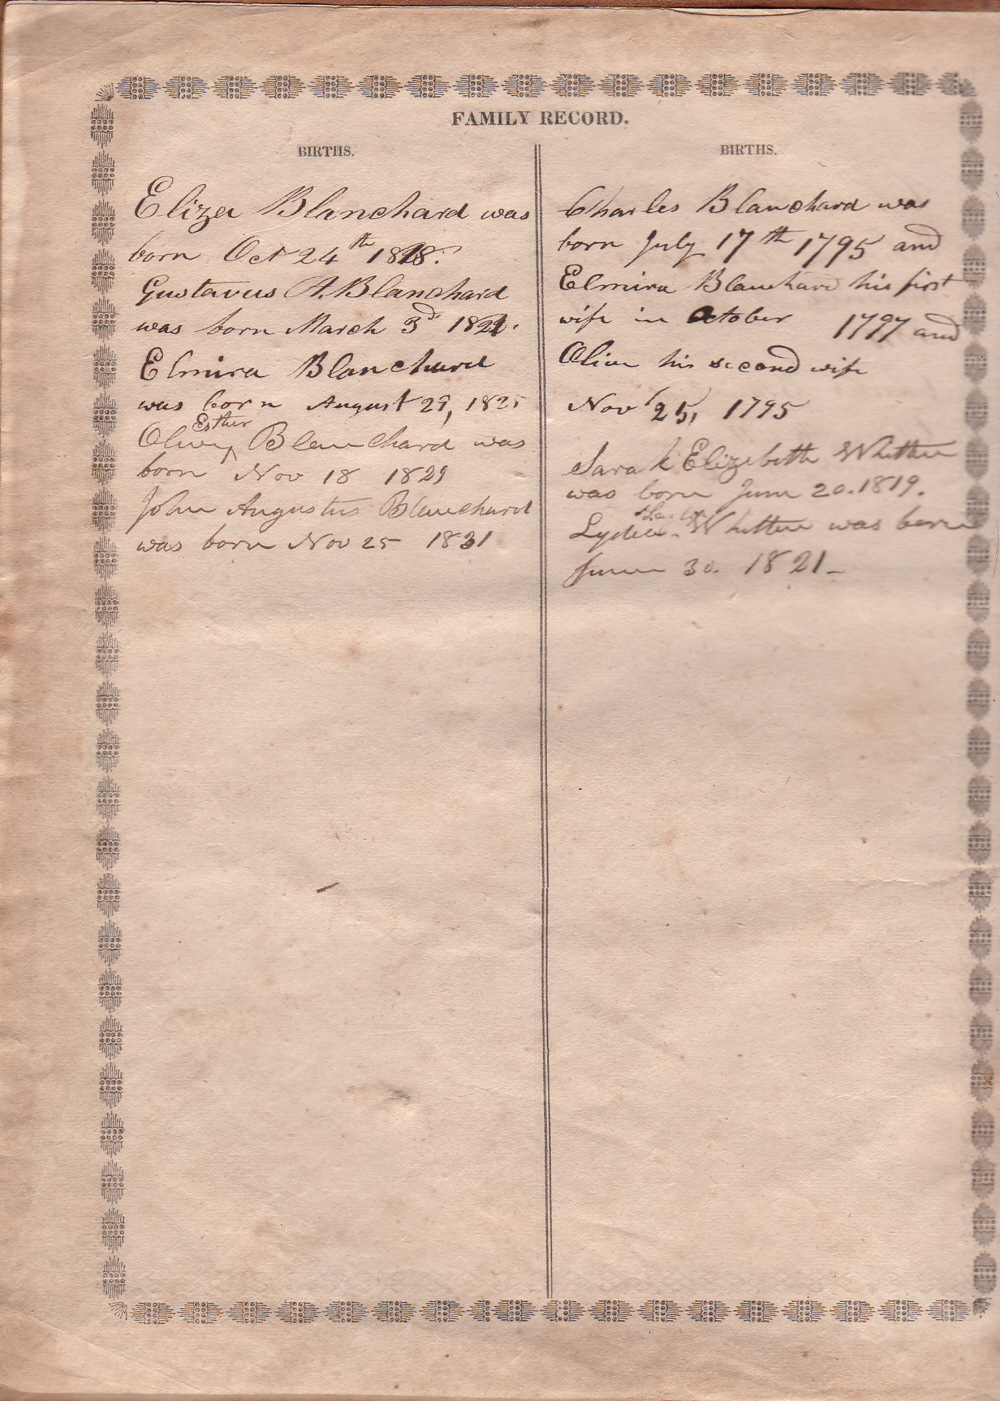 FAMILY RECORD.
BIRTHS.
Eliza Blanchard was
born Oct 24th 1818.
Gustavus A. Blanchard
was born March 3d 1821.
Elmira Blanchard
was born August 29, 1825
Esther
Olive ^ Blanchard was
born Nov 18 1829
John Augustus Blanchard
was born Nov 25 1831
BIRTHS.
Charles Blanchard was
born July 17th 1795 and
Elmira Blanchard his first
wife in October 1797 and
Olive his second wife
Nov 25, 1795
Sarah Elizabeth Whitten
was born June 20. 1819.
Lydia Whitten was born
June 30. 1821_